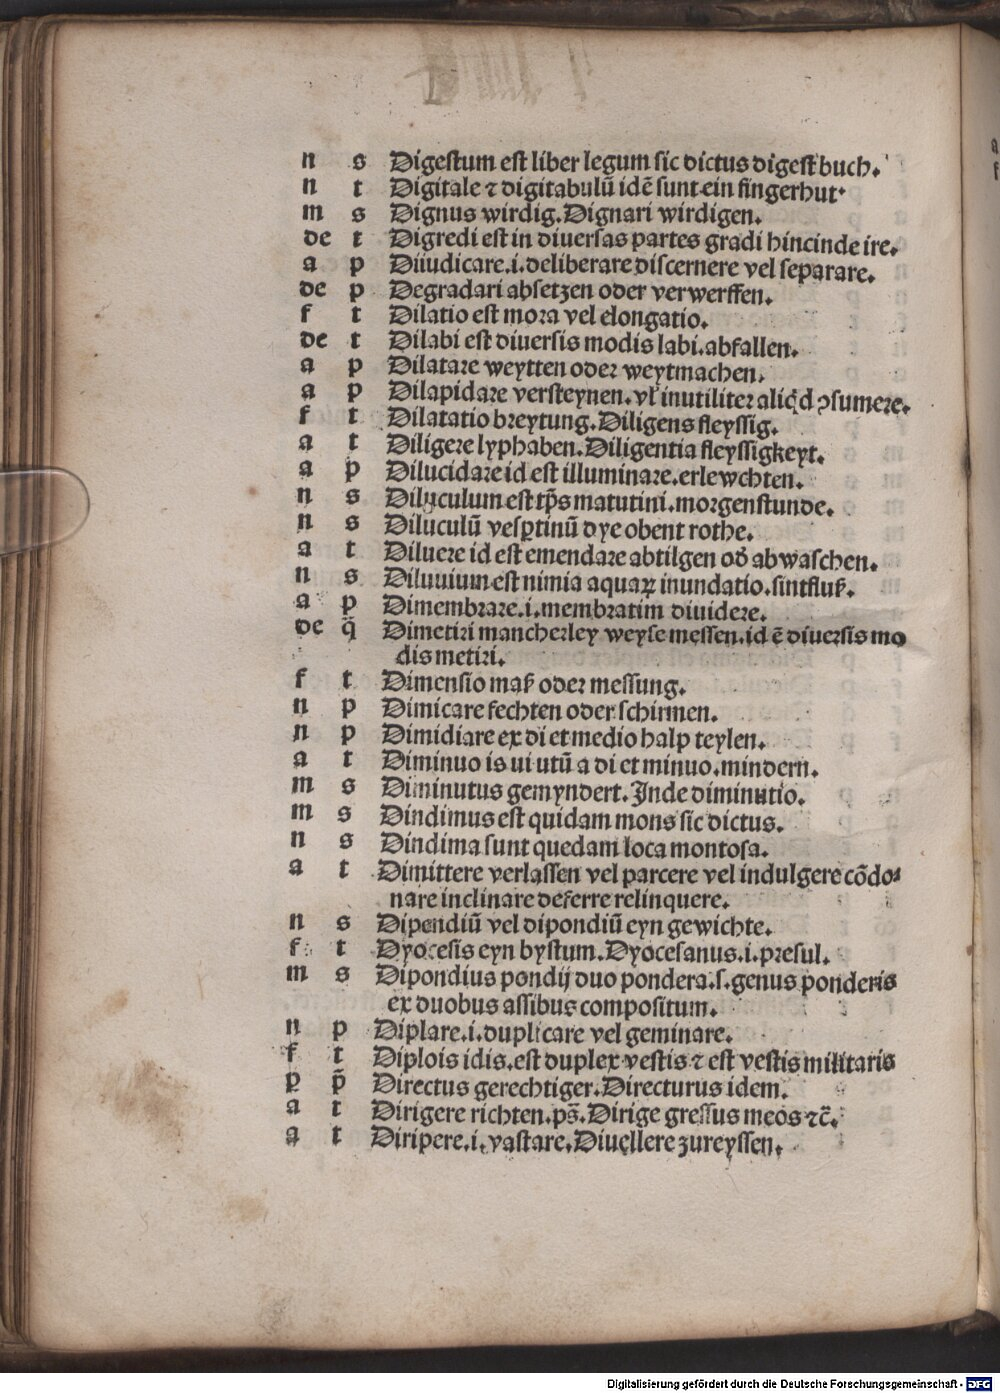 n s Digestum est liber legum sic dictus digest buch.
n t Digitale ⁊ digitabulū idē sunt ein fingerhut.
m s Dignus wirdig. Dignari wirdigen.
de t Digredi est in diuersas partes gradi hincinde ire.
a p Diiudicare .i. deliberare discernere vel separare.
de p Degradari absetzen oder verwerffen.
f t Dilatio est mora vel elongatio.
de t Dilabi est diuersis modis labi. abfallen.
a p Dilatare weytten oder weytmachen.
a p Dilapidare versteynen. vł inutiliter aliq̇d ↄsumere.
f t Dilatatio breytung. Diligens fleyssig.
a t Diligere lyphaben. Diligentia fleyssigkeyt.
a p Dilucidare id est illuminare. erlewchten.
n s Diluculum est tp̄s matutini. morgenstunde.
n s Diluculū vesꝑtinū dye obent rothe.
a t Diluere id est emendare abtilgen od̄ abwaschen.
n s Diluuium est nimia aquaꝝ inundatio. sintfluß.
a p Dimembrare .i. membratim diuidere.
de q̄ Dimetiri mancherley weyse messen. id ē diuersis mo
dis metiri.
f t Dimensio maß oder messung.
n p Dimicare fechten oder schirmen.
n p Dimidiare ex di et medio halp teylen.
a t Diminuo is ui utū a di et minuo. mindern.
m s Diminutus gemyndert. Inde diminutio.
m s Dindimus est quidam mons sic dictus.
n s Dindima sunt quedam loca montosa.
a t Dimittere verlassen vel parcere vel indulgere cōdo⸗
nare inclinare deferre relinquere.
n s Dipendiū vel dipondiū eyn gewichte.
f t Dyocesis eyn bystum. Dyocesanus .i. presul.
m s Dipondius pondij duo pondera .s. genus ponderis
ex duobus assibus compositum.
n p Diplare .i. duplicare vel geminare.
f t Diplois idis. est duplex vestis ⁊ est vestis militaris
p p̄ Directus gerechtiger. Directurus idem.
a t Dirigere richten. ps̄. Dirige gressus meos ⁊c̄.
a t Diripere .i. vastare. Diuellere zureyssen.
Digitalisierung gefördert durch die Deutsche Forschungsgemeinschaft - DFG